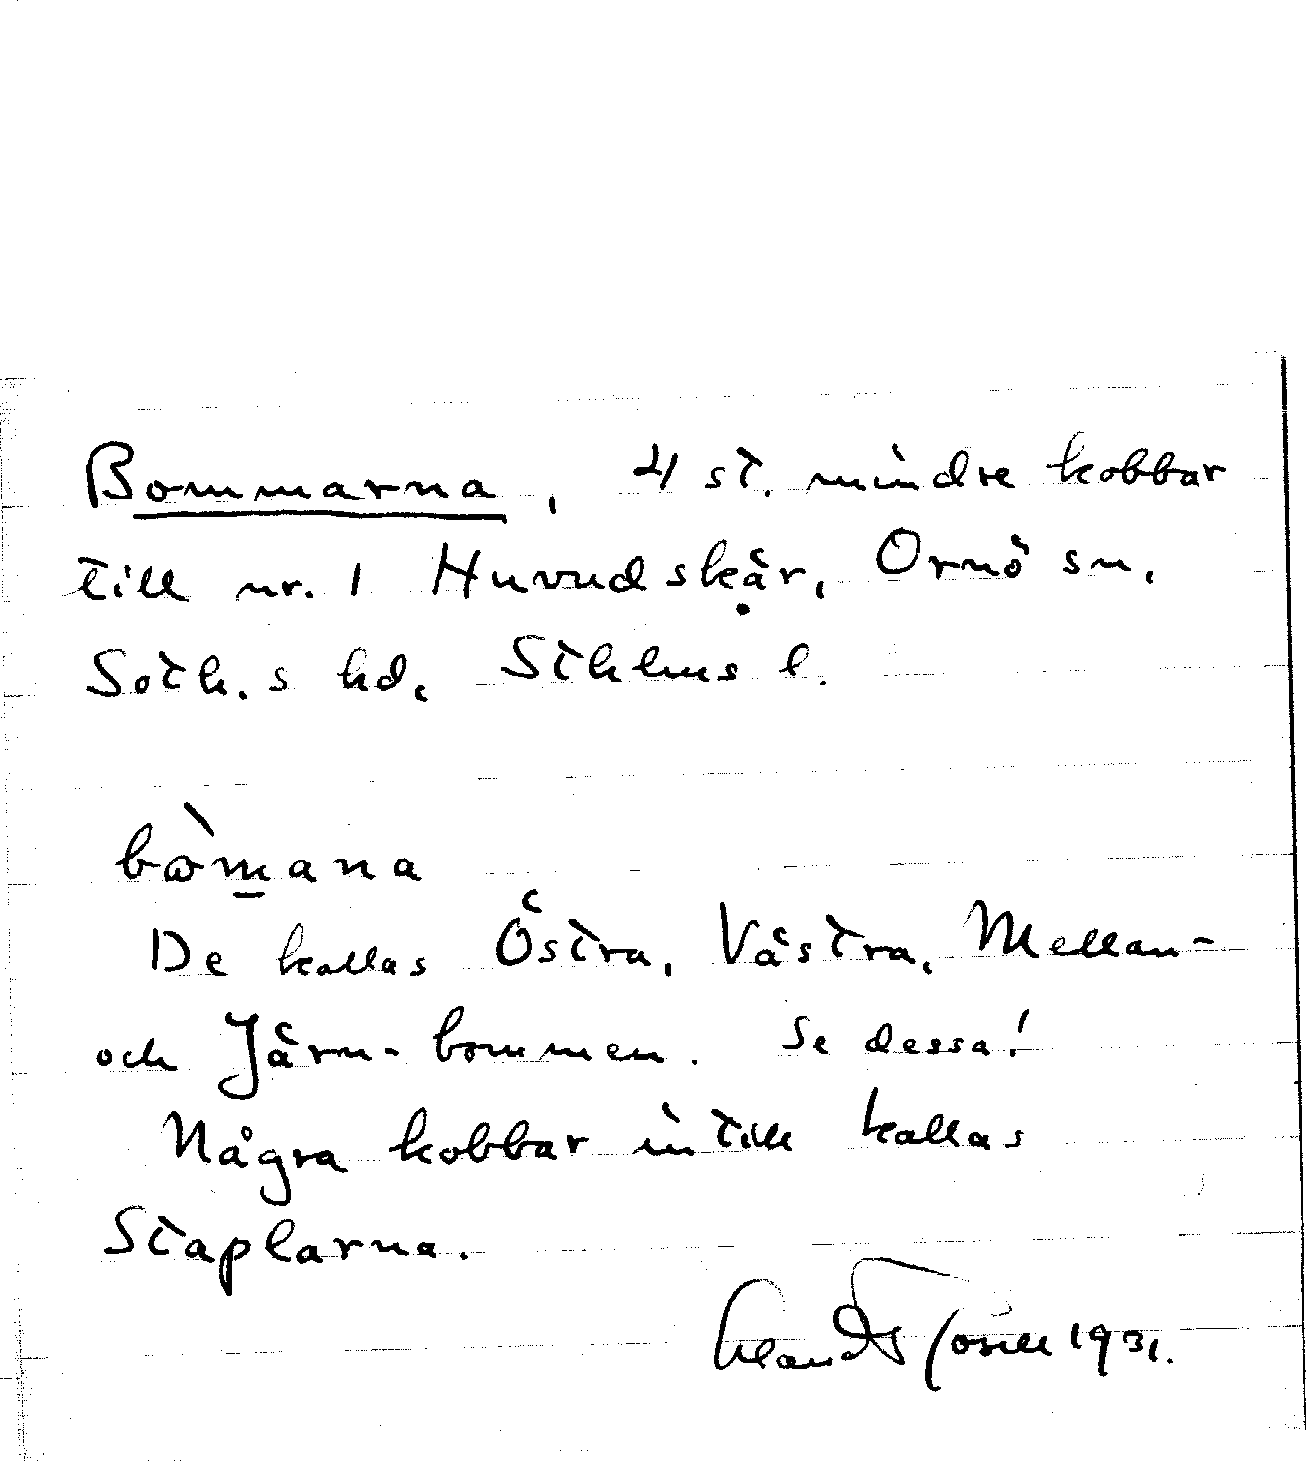 Bommarna, 4 st. mindre kobbar
till nr. 1 Huvudskär, Ornö sn,
Soth.s hd, Sthlms l.
bòm̲ana
De kallas Östra, Västra, Mellan-
och Järn-bommen. Se dessa!
Några kobbar intill kallas
Staplarna.
1931.